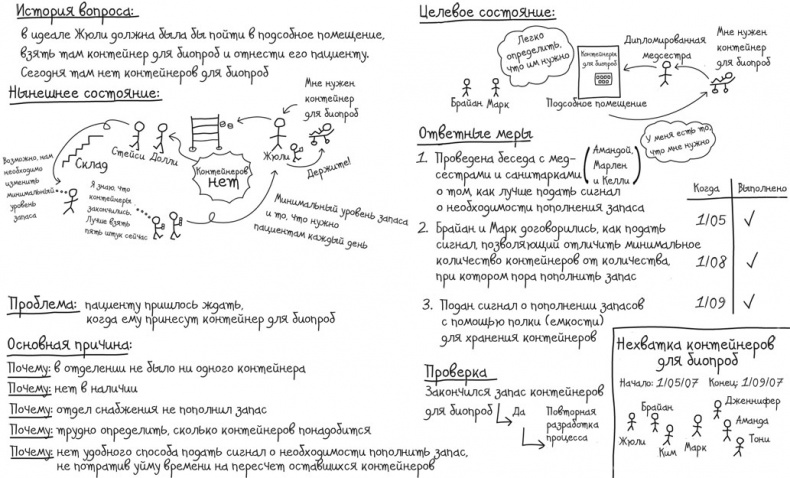 История вопроса:
в идеале Жюли должна была бы пойти в подсобное помещение,
взять там контейнер для биопроб и отнести его пациенту.
Сегодня там нет контейнеров для биопроб
Нынешнее состояние:
Мне нужен
контейнер
для биопроб
Стейси Долли
Склад
Контейнеров
нет
Жюли
Держите!
Возможно, нам
необходимо
изменить
минимальный
уровень
запаса
Я знаю, что
контейнеры
закончились.
Лучше взять
пять штук сейчас
Минимальный уровень запаса
и то, что нужно
пациентам каждый день
Проблема: пациенту пришлось ждать,
когда ему принесут контейнер для биопроб
Основная причина:
Почему: в отделении не было ни одного контейнера
Почему: нет в наличии
Почему: отдел снабжения не пополнил запас
Почему: трудно определить, сколько контейнеров понадобится
Почему: нет удобного способа подать сигнал о необходимости пополнить запас,
не потратив уйму времени на пересчет оставшихся контейнеров
Целевое состояние:
Легко
определить,
что им нужно
Брайан Марк
Контейнеры
для биопроб
Подсобное помещение
Дипломированная
медсестра
Мне нужен
контейнер
для биопроб
У меня есть то,
что мне нужно
Ответные меры
1. Проведена беседа с мед-
сестрами и санитарками
(Амандой,
Марлен
и Келли)
о том как лучше подать сигнал
о необходимости пополнения запаса
2. Брайан и Марк договорились, как подать
сигнал, позволяющий отличить минимальное
количество контейнеров от количества,
при котором пора пополнить запас
3. Подан сигнал о пополнении запасов
с помощью полки (емкости)
для хранения контейнеров
Когда Выполнено
1/05 ✓
1/08 ✓
1/09 ✓
Проверка
Закончился запас контейнеров
для биопроб
Да
Повторная
разработка
процесса
Нехватка контейнеров
для биопроб
Начало: 1/05/07 Конец: 1/09/07
Дженнифер
Брайан
Аманда
Жюли
Ким
Марк
Тони